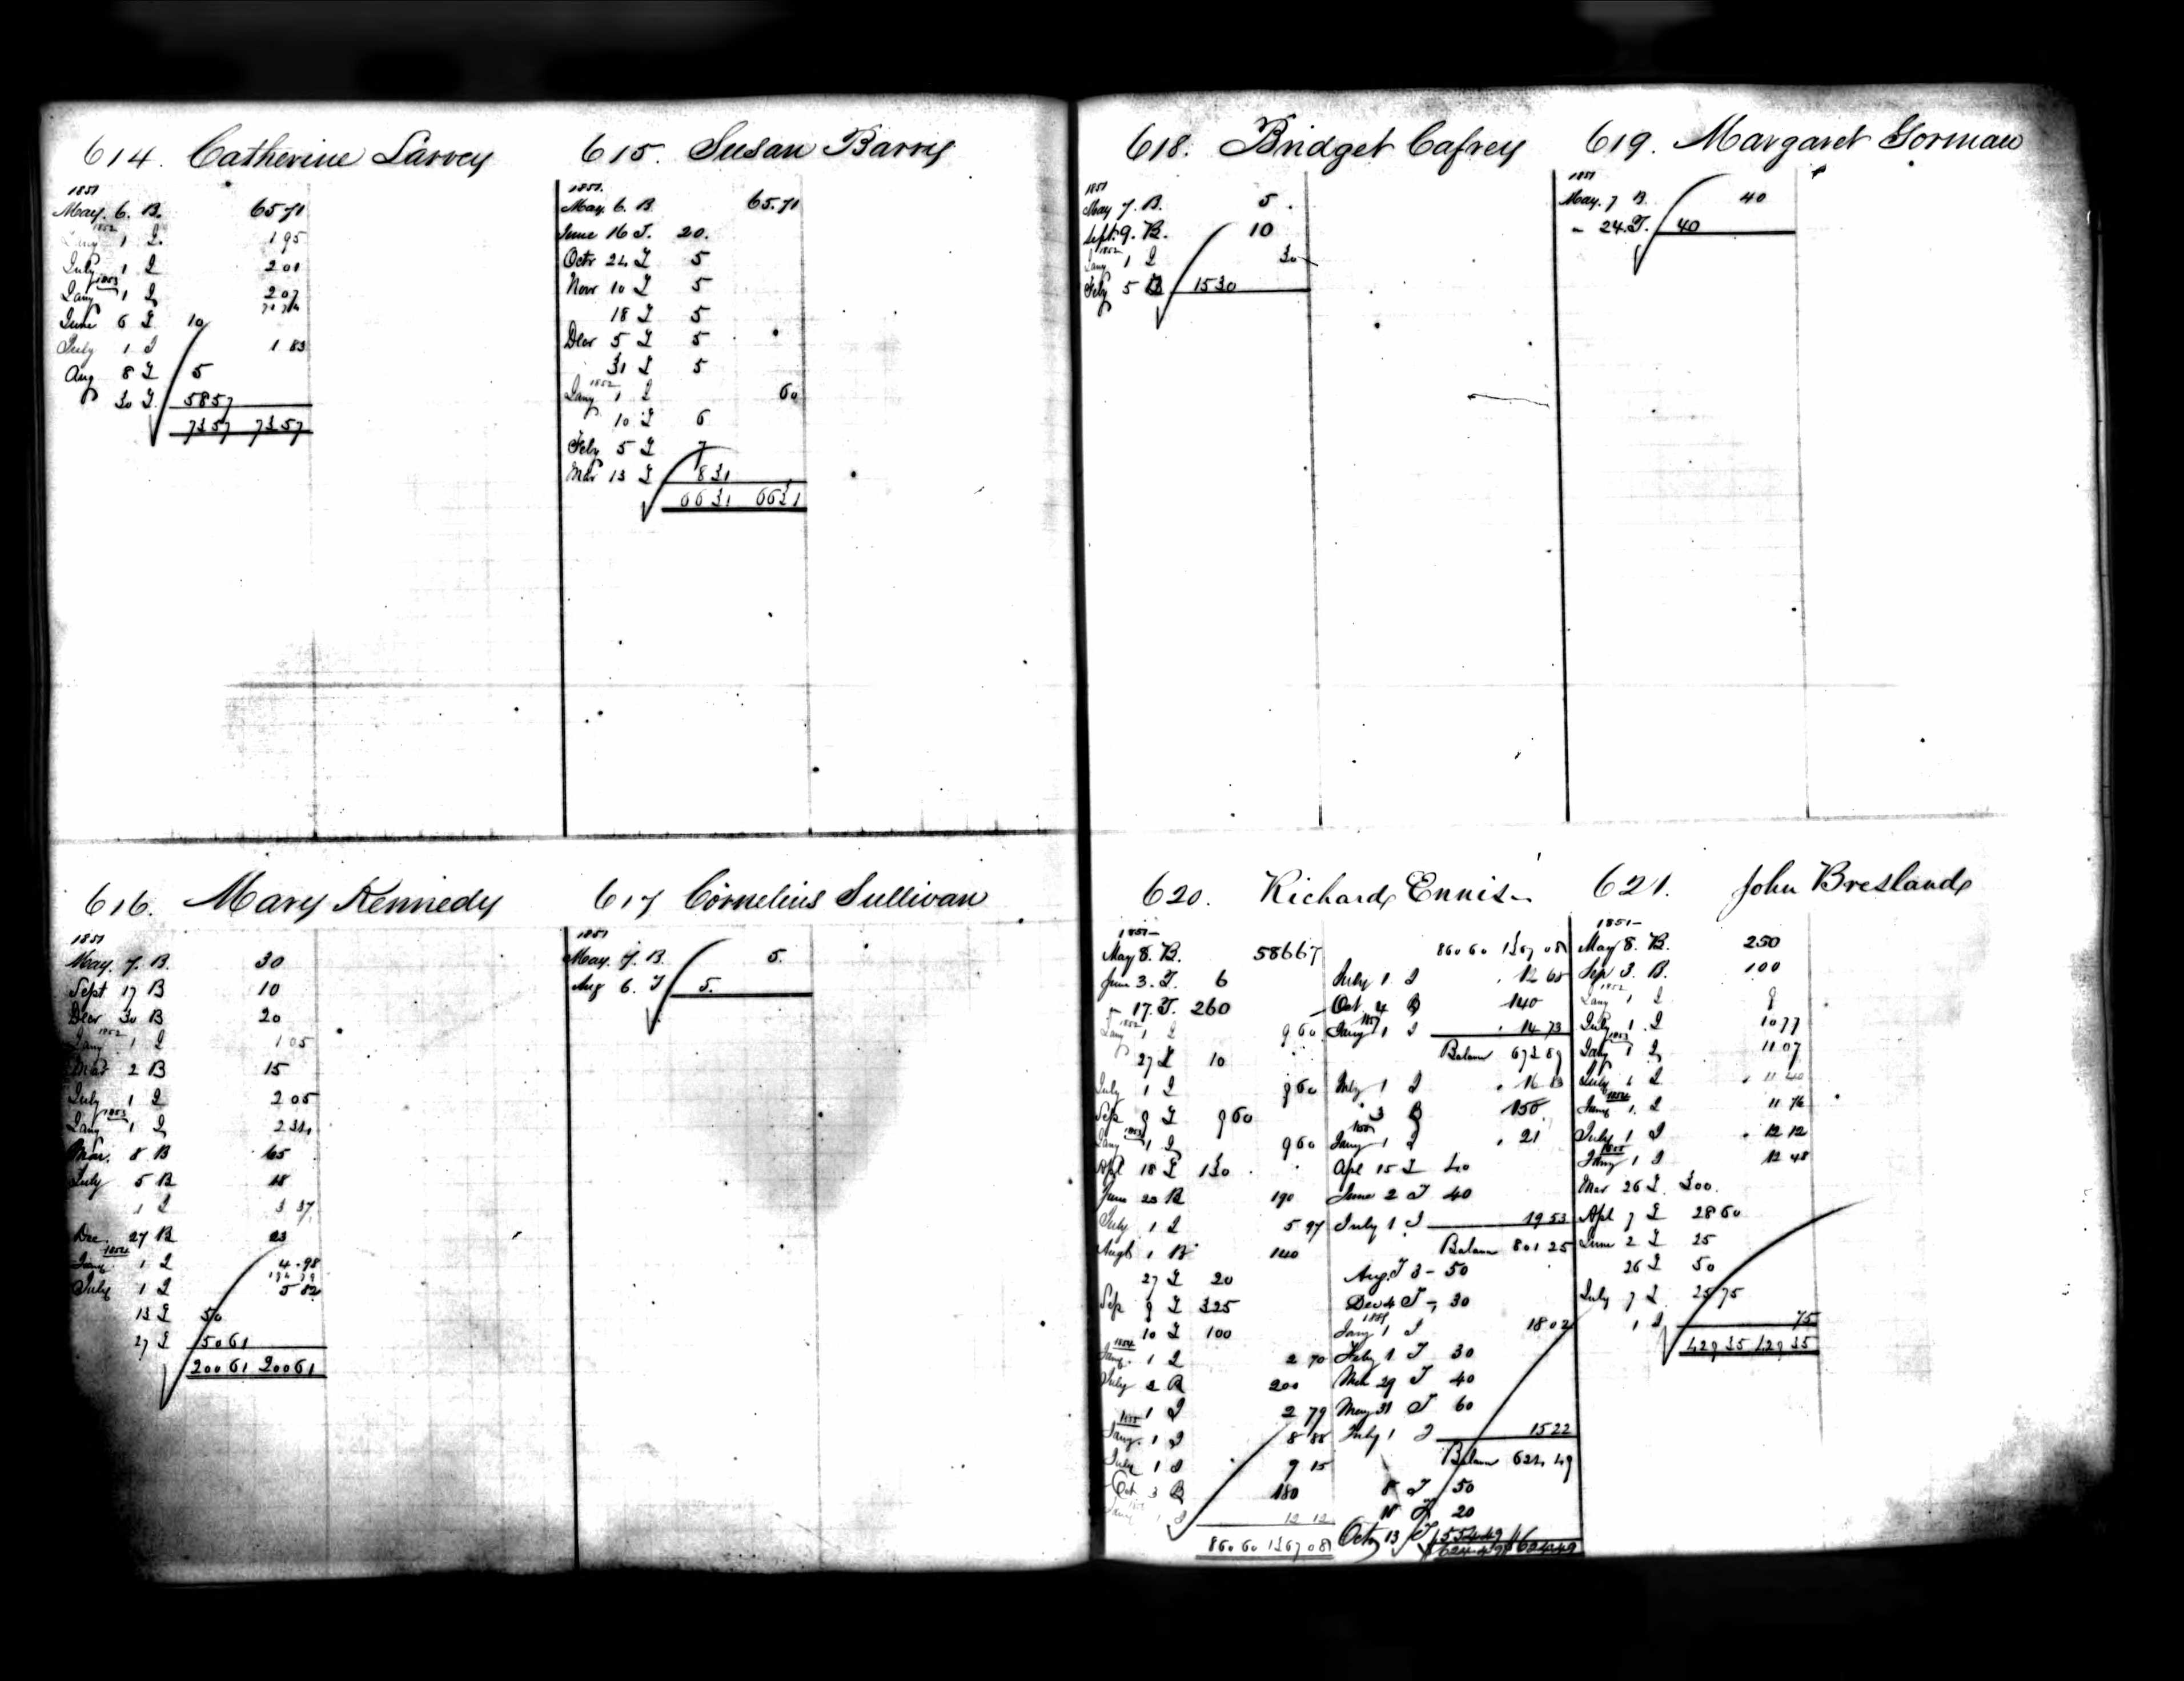 614. Catherine Larvey
1851
May. 6. B. 65 71
1852
Jany 1 I. 1 95
July 1 I 2 01
1853
Jany 1 I 2 07
71 74
June 6 T 10
July 1 I 1 83
Aug 8 T 5
30 T. 58 57
73 57 73 57
615. Susan Barry
1851.
May. 6. B. 65.71
June 16 T. 20.
Octr 24 T 5
Novr 10 T 5
18 T 5
Decr 5 T 5
31 T 5
1852
Jany 1 I 60
10 T 6
Feby 5 T 7
Mar 13 T 8 31
66 31 66 31
616. Mary Kennedy
1851
May. 7. B. 30
Sept 17 B 10
Decr 30 B 20
1852
Jany 1 I 1 05
Mar 2 B 15
July 1 I 2 05
1853
Jany 1 I 2 34
Mar. 8 B 65
July 5 B 18
1 I 3 37
Dec. 27 B 23
1854
Jany. 1 I 4.98
194 79
July 1 I 5 82
13 T 50
27 T 150 61
200 61 200 61
617 Cornelius Sullivan
1851
May. 7. B. 5.
Aug 6. T 5.
618. Bridget Cafrey
1851
May 7. B. 5.
Sept. 9. B. 10
1852
Jany 1 I 30
Feby 5 T 15 30
619. Margaret Gorman
1851
May. 7 B. 40
" 24. T. 40
620. Richard Ennis
1851
May 8. B. 586 67
June 3. T. 6
" 17. T. 260
1852
Jany 1 I 9 60
27 T 10
July 1 I 9 60
Sep 9 T 9 60
1853
Jany 1 I 9 60
Apl 18 T 130
June 23 B 190
July 1 I 5 97
Augt 1 B 140
27 T 20
Sep 9 T 325
10 T 100
1854
Jany. 1 I 2 70
July 2 B 200
1 I 2 79
1855
Jany. 1 I 8 88
July 1 I 9 15
Oct 3 B 180
Jany 1 I 12 12
860 60 1367 08
860 60 1367 08
July 1 I 12 68
Oct 4 B 140
1857
Jany 1 I 14 73
Balance 673 89
July 1 I 16 83
3 B 150
1858
Jany 1 I 21
Apl 15 T 40
June 2 T 40
July 1 I 19 53
Balance 801 25
Aug. T 3 - 50
Dec 4 T - 30
1859
Jany 1 I 18 02
Feby 1 T 30
Mch 29 T 40
May 31 T 60
July 1 I 15 22
Balance 624 49
8 T 50
18 T 20
Oct 13 T 554 49
624 49 624 49
621. John Breslaud
1851
May 8. B. 250
Sep 3. B. 100
1852
Jany 1 I 9
July 1. I 10 77
1853
Jany 1 I 11 07
July 1 I 11 40
1854
Jany 1. I 11 76
July 1 I 12 12
1855
Jany 1 I 12 48
Mar 26 T 300.
Apl 7 T 28 60
June 2 T 25
26 T 50
July 7 T 25 75
1 I 75
429 35 429 35